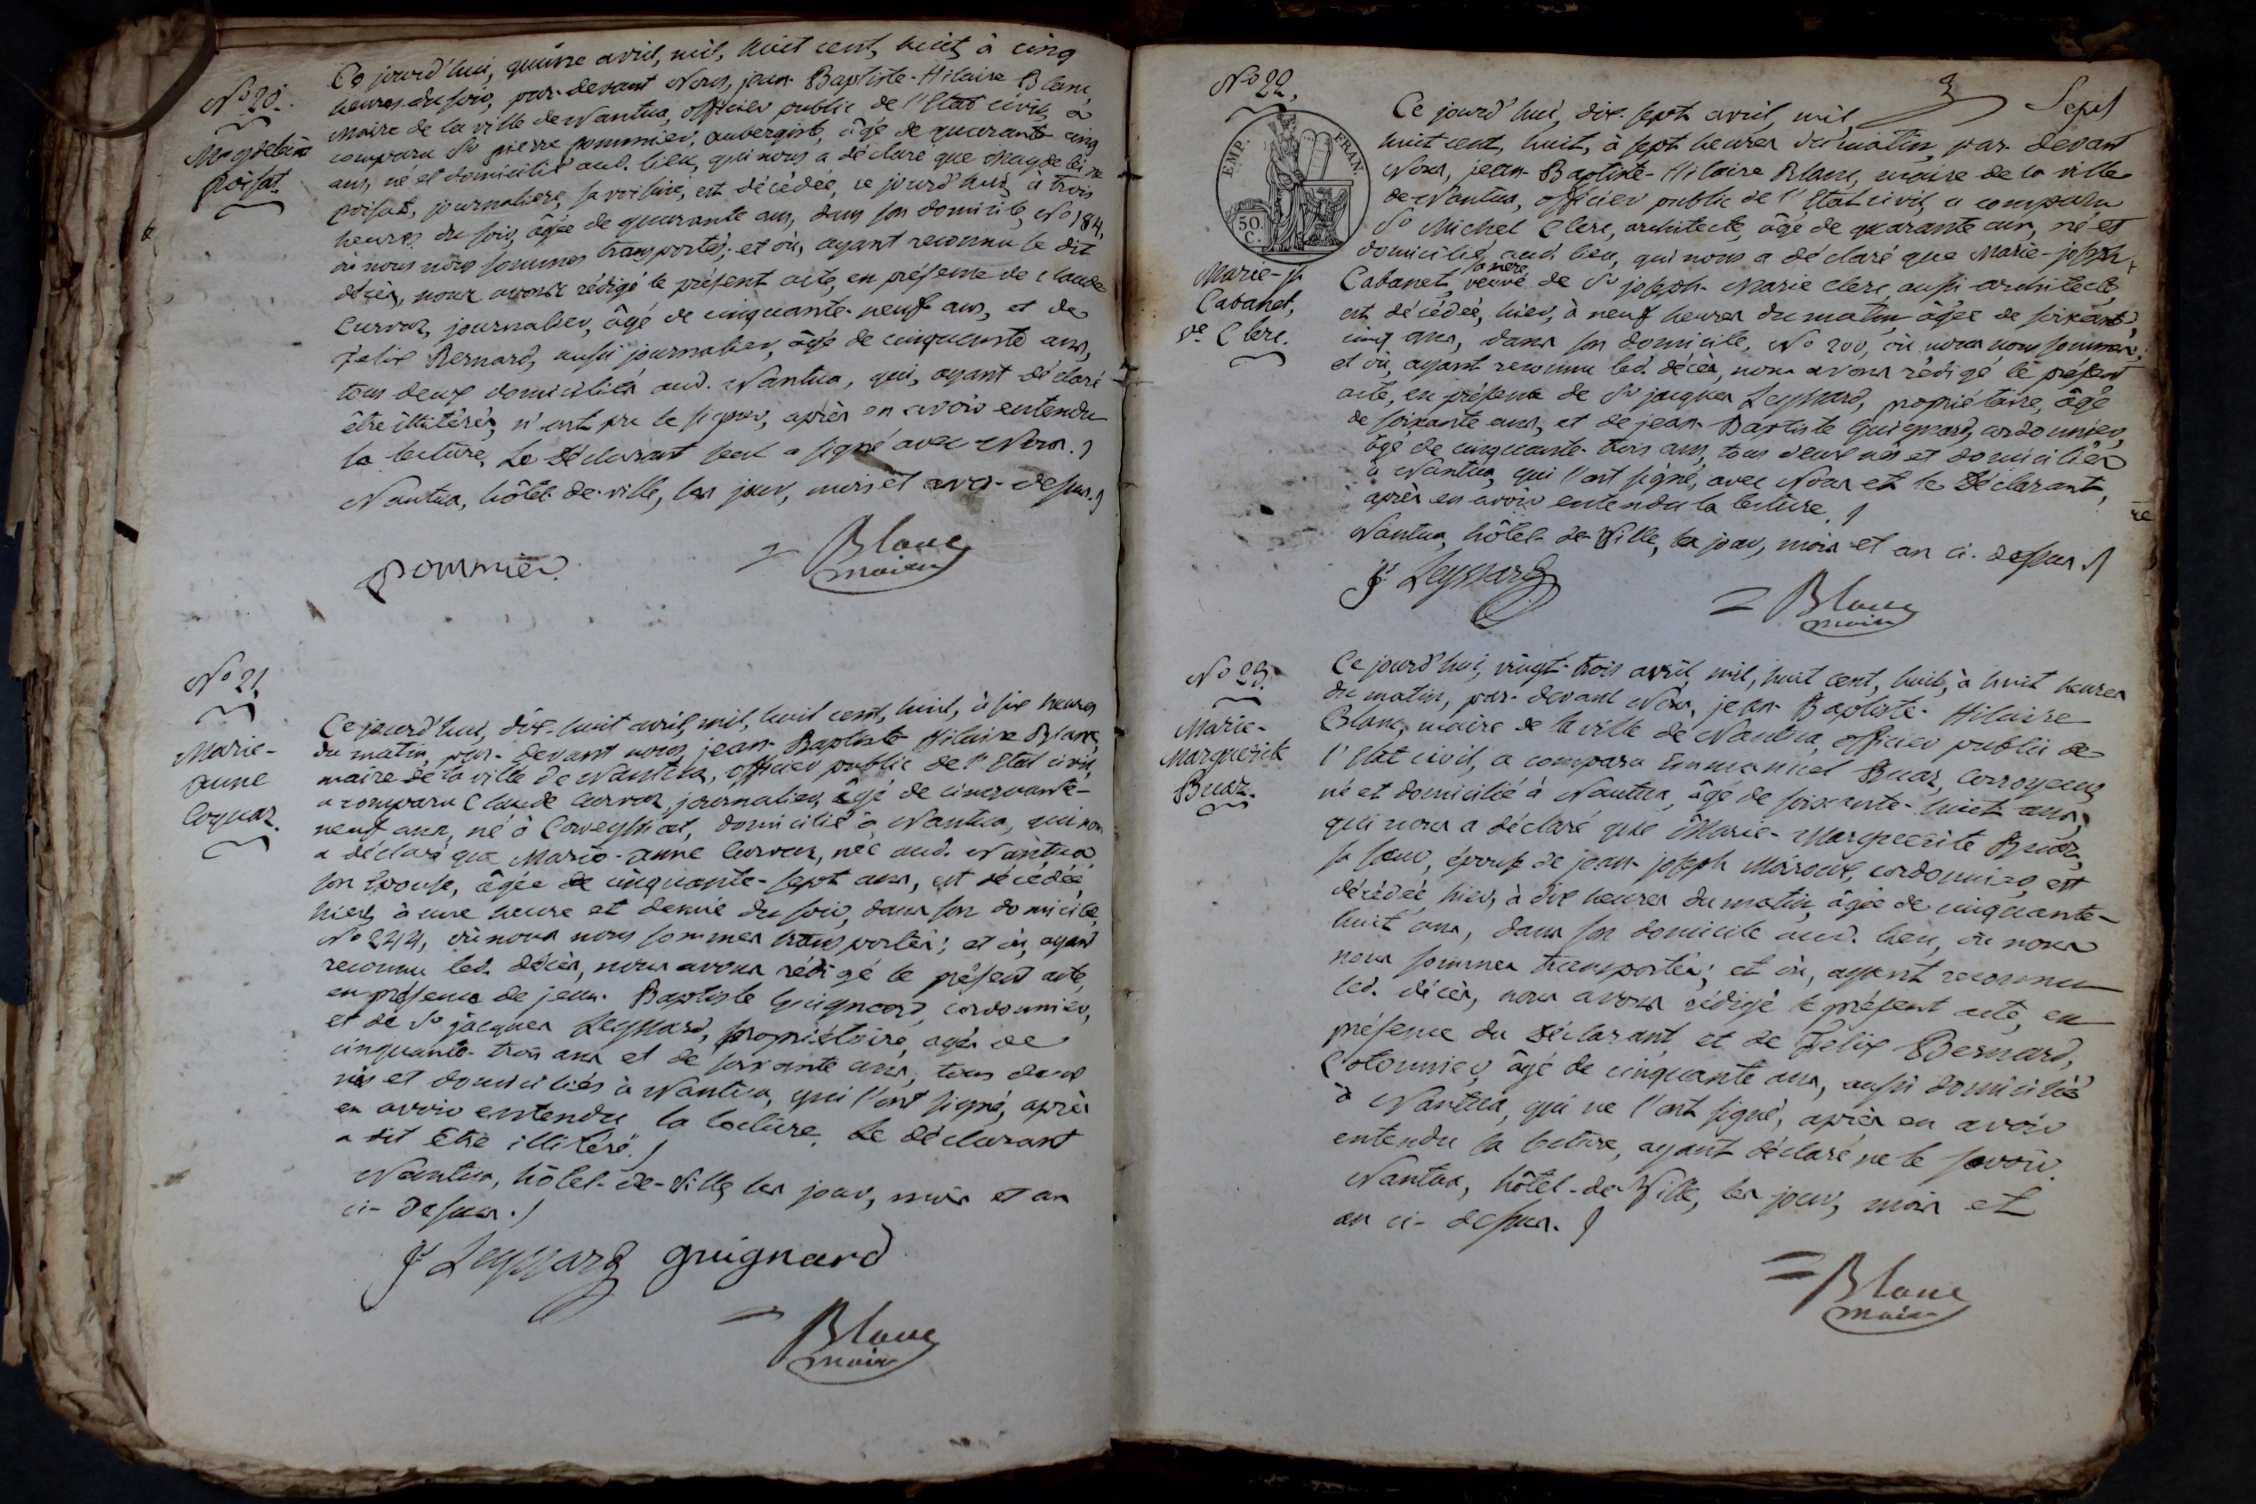 No 20.
Magdelaine
poisat.
Ce jourd'hui, quinze avril, mil, huit cent, huit, à cinq
heures du soir, par-devant Nous, jean-Baptiste-Hilaire Blanc
maire de la ville de Nantua, officier public de l'Etat civil, a
comparu Sr pierre pommier, aubergiste, âgé de quarante cinq
ans, né et domicilié aud. lieu, qui nous a déclaré que Magdelaine
poisat, journaliere, sa voisine, est décédée, ce jourd'hui, à trois
heures du soir, âgée de quarante ans, dans son domicile, No 184,
où nous nous sommes transportés; et où, ayant reconnu le dit
décès, nous avons rédigé le présent acte, en présence de claude
Curvaz, journalier, âgé de cinquante-neuf ans, et de
Felix Bernard, aussi journalier, âgé de cinquante ans,
tous deux domiciliés aud. Nantua, qui, ayant déclaré
être illitérés, n'ont pu le signer, après en avoir entendu
la lecture. Le Déclarant seul a signé avec Nous.
Nantua, hôtel-de-ville, les jour, mois et an ci-dessus.
pommier.
Blanc
maire
No 21.
Marie-
anne
Coquaz.
Ce jourd'hui, dix-huit avril, mil, huit cent, huit, à six heures
du matin, par-devant nous, jean-Baptiste Hilaire Blanc,
maire de la ville de Nantua, officier public de l'Etat civil,
a comparu Claude Curvaz, journalier, âgé de cinquante-
neuf ans, né à Corveyssiat, domicilié à Nantua, qui nous
a déclaré que Marie-anne Curvaz, née aud. Nantua,
son Epouse, âgée de cinquante-sept ans, est décédée,
hier, à une heure et demie du soir, dans son domicile,
No 244, où nous nous sommes transportés; et où, ayant
reconnu led. décès, nous avons rédigé le présent acte,
en présence de jean-Baptiste Guignard, cordonnier,
et de Sr jacques Leyssard, propriétaire, agés de
cinquante-trois ans et de soixante ans, tous deux
nés et domiciliés à Nantua, qui l'ont signé, après
en avoir entendu la lecture. Le déclarant
a dit Etre illitéré.
Nantua, hôtel-de-Ville, les jour, mois et an
ci-dessus.
Jq Leyssard guignard
Blanc
maire
No 22.
Sept
EMP. FRAN.
50.
C.
Marie-jh
Cabanet,
ve Clerc.
Ce jourd'hui, dix-sept avril, mil,
huit cent, huit, à sept heures du matin, par-devant
Nous, jean-Baptiste-Hilaire Blanc, maire de la ville
de Nantua, officier public de l'Etat civil, a comparu
Sr Michel Clerc, architecte, âgé de quarante ans, né et
domicilié aud. lieu, qui nous a déclaré que Marie-joseph
sa mère,
Cabanet, veuve de Sr joseph-Marie clerc, aussi architecte,
est décédée, hier, à neuf heures du matin, âgée de soixante
cinq ans, dans son domicile, No 200, où nous nous sommes
et où, ayant reconnu led. décès, nous avons rédigé le présent
acte, en présence de Sr jacques Leyssard, propriétaire, âgé
de soixante ans, et de jean-Baptiste Guignard, cordonnier,
âgé de cinquante-trois ans, tous deux nés et domiciliés
à Nantua, qui l'ont signé, avec Nous et le Déclarant,
après en avoir entendu la lecture.
Nantua, hôtel-de-Ville, les jour, mois et an ci-dessus
Jq Leyssard
Blanc
maire
No 23.
Marie-
Marguerite
Buaz.
Ce jourd'hui, vingt-trois avril, mil, huit cent, huit, à huit heures
du matin, par-devant Nous, jean-Baptiste-Hilaire
Blanc, maire de la ville de Nantua, officier public de
l'Etat civil, a comparu Emmanuel Buaz, corroyeur,
né et domicilié à Nantua, âgé de soixante-huit ans,
qui nous a déclaré que Marie-Marguerite Buaz,
sa soeur, épouse de jean-joseph Miroux, cordonnier, est
décédée, hier, à dix heures du matin, âgée de cinquante-
huit ans, dans son domicile aud. lieu, où nous
nous sommes transportés; et où, ayant reconnu
led. décès, nous avons rédigé le présent acte, en
présence du Déclarant, et de Felix Bernard,
Cotonnier, âgé de cinquante ans, aussi domicilié
à Nantua, qui ne l'ont signé, après en avoir
entendu la lecture, ayant déclaré ne le savoir.
Nantua, hôtel-de-Ville, les jour, mois et
an ci-dessus.
Blanc
maire